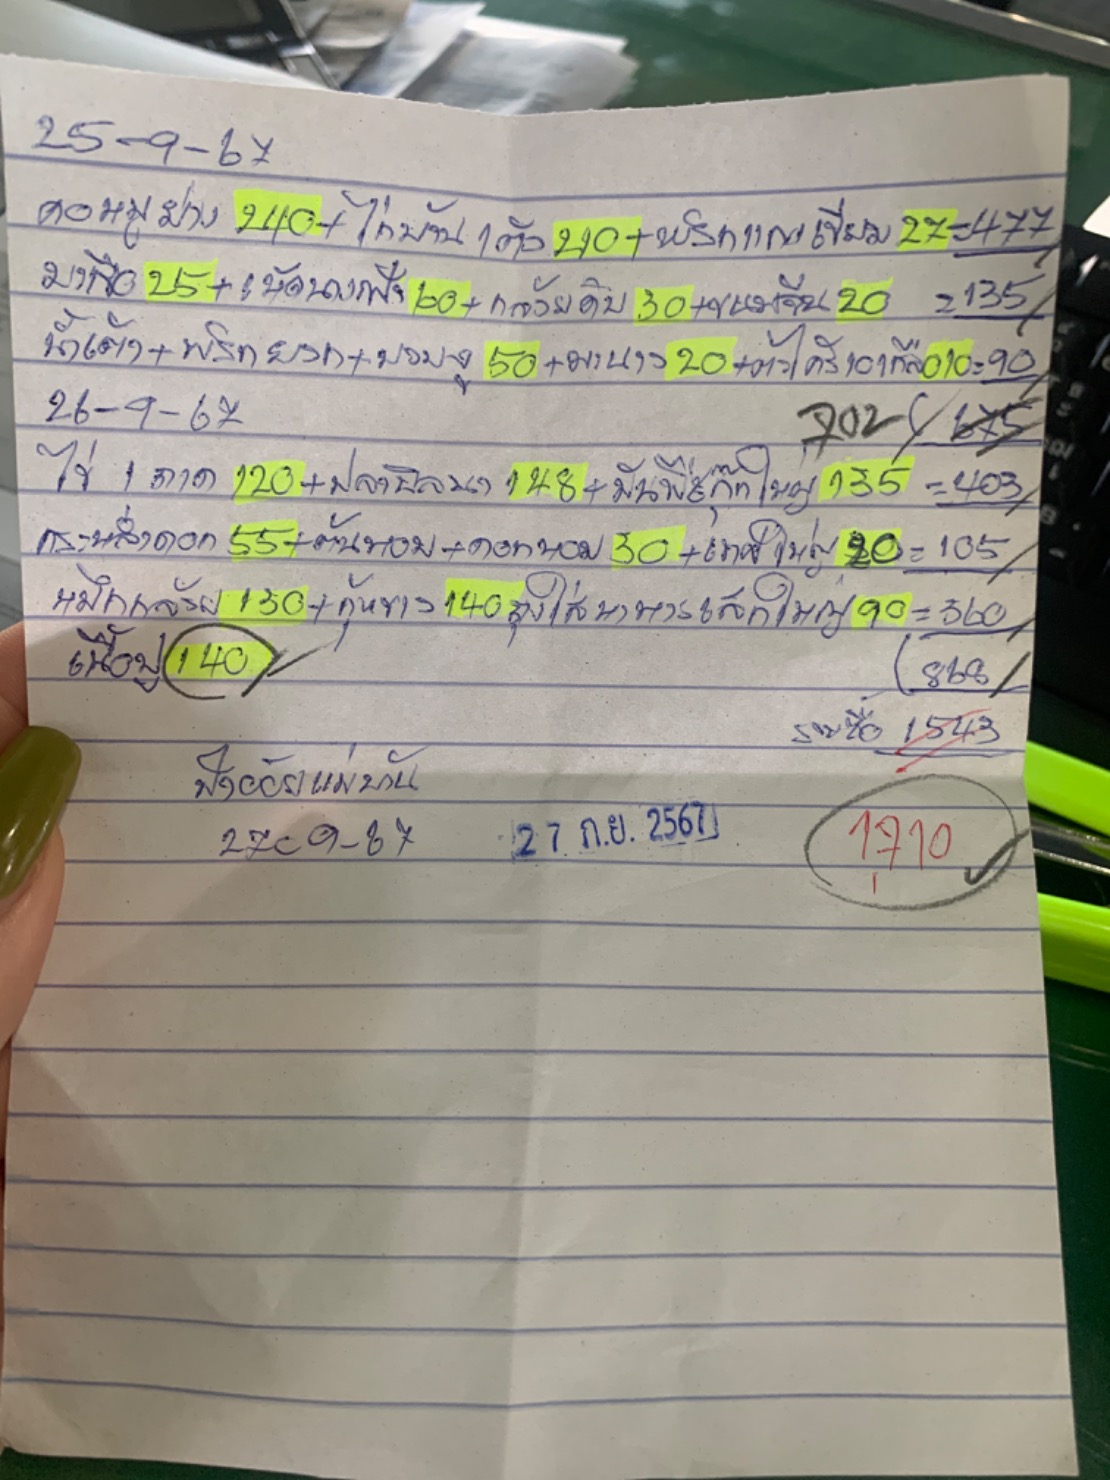 25-9-67
คอหมูย่าง 240+ไก่บ้าน 1 ตัว 210+พริกแกงเขียว 27=477
มะเขือ 25+เห็ดนางฟ้า 60+กล้วยดิบ 30+ขนมจีน 20 =135
น้ำเต้า+พริกยวก+บวบงู 50+มะนาว 20+ตะไคร้ 10 เกลือ 10=90
26-9-67 702 675
ไข่ 1 ถาด 120+ปลานิลนา 148+มันฝรั่งใหญ่ 135 =403
กะหล่ำดอก 55+ต้นหอม+ดอกหอม 30+ใหญ่ 20=105
หมึกกล้วย 130+กุ้งขาว 140 ถุงใส่อาหารใหญ่ 90=360
เนื้อปู 140 868
รวมซื้อ 1543
ฟ้าแม่บ้าน
27-9-67 27 ก.ย. 2567 1710